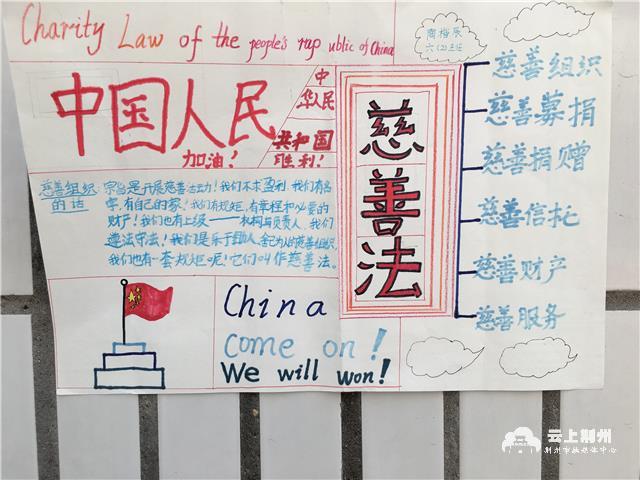 Charity Law of the people's rap ublic of China
六(2)班
中国人民
加油!
中
华人民
共和国
胜利!
慈善法
慈善组织
慈善募捐
慈善捐赠
慈善信托
慈善财产
慈善服务
慈善组织
的话
宗旨是开展慈善活动!我们不求盈利,我们有名
字,有自己的家!我们有规矩,有章程和必要的
财产!我们也有上级——机构与负责人,我们
遵法守法!我们是乐于助人,舍己为人的慈善组织,
我们也有一套规矩呢!它们叫作慈善法。
China
come on!
We will won!
云上荆州
荆州市融媒体中心